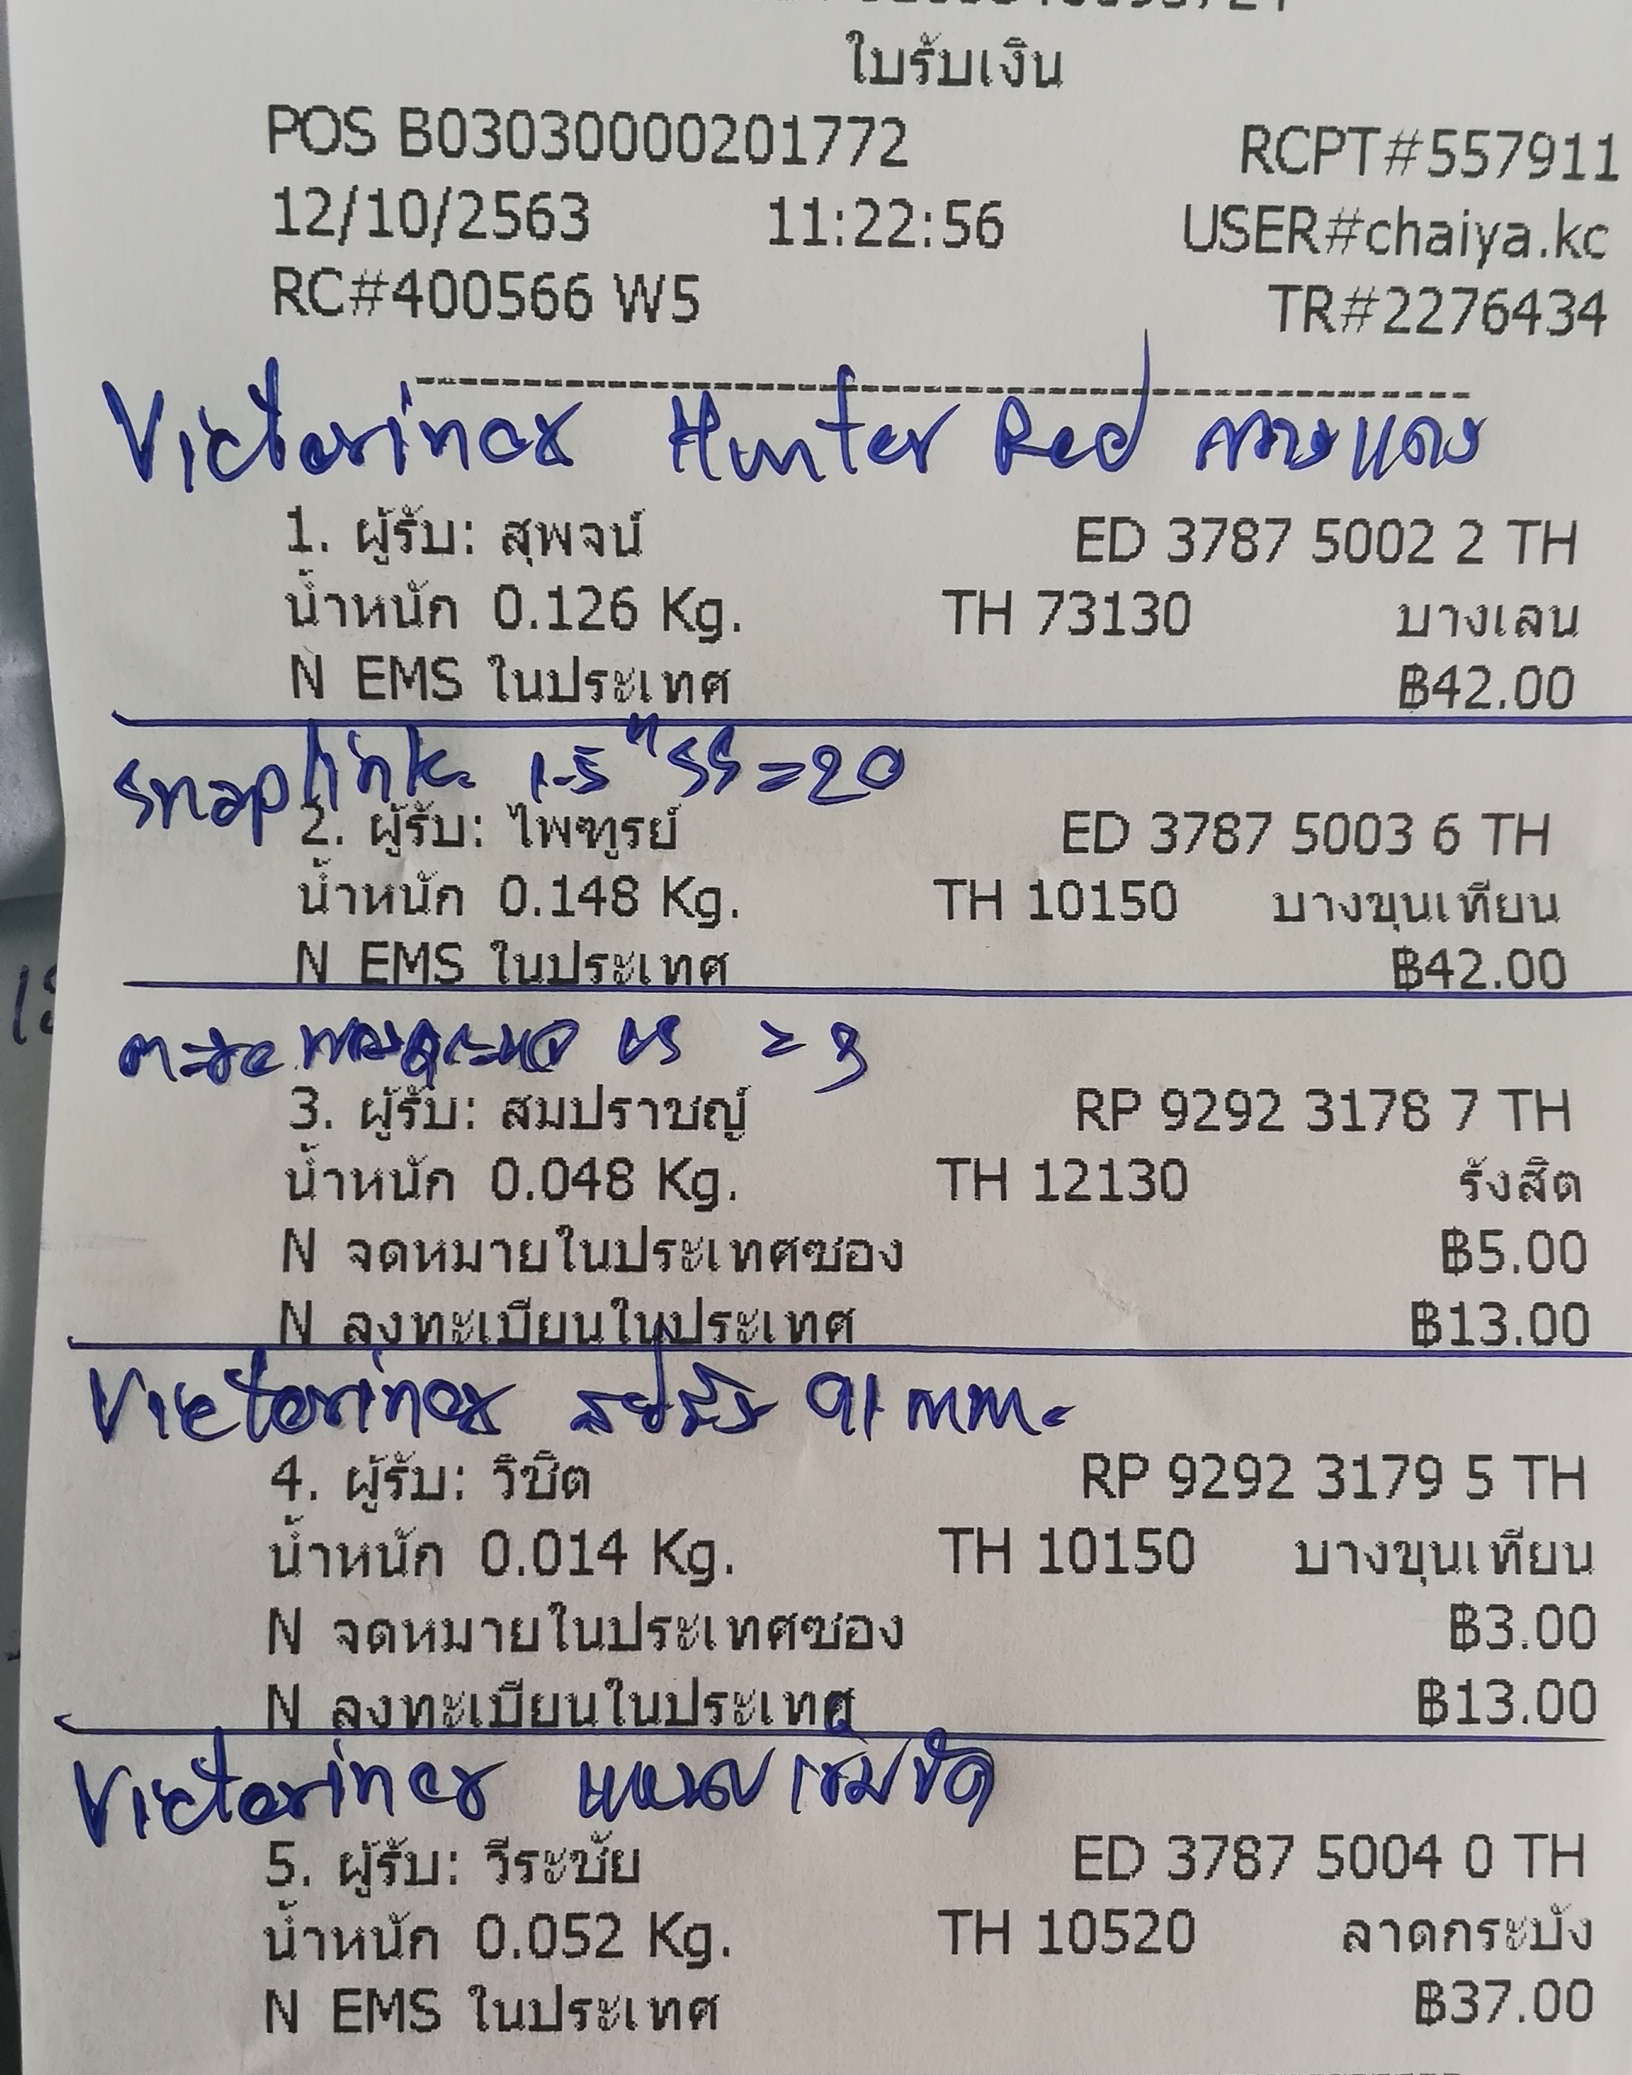 ใบรับเงิน
POS B03030000201772 RCPT#557911
12/10/2563 11:22:56 USER#chaiya.kc
RC#400566 W5 TR#2276434
Victorinox Hunter Red กางแดง
1. ผู้รับ: สุพจน์ ED 3787 5002 2 TH
น้ำหนัก 0.126 Kg. TH 73130 บางเลน
N EMS ในประเทศ ฿42.00
snaplink 1.5" SS = 20
2. ผู้รับ: ไพฑูรย์ ED 3787 5003 6 TH
น้ำหนัก 0.148 Kg. TH 10150 บางขุนเทียน
N EMS ในประเทศ ฿42.00
= 3
3. ผู้รับ: สมปราชญ์ RP 9292 3178 7 TH
น้ำหนัก 0.048 Kg. TH 12130 รังสิต
N จดหมายในประเทศซอง ฿5.00
N ลงทะเบียนในประเทศ ฿13.00
Victorinox สปริง 91 mm.
4. ผู้รับ: วิชิต RP 9292 3179 5 TH
น้ำหนัก 0.014 Kg. TH 10150 บางขุนเทียน
N จดหมายในประเทศซอง ฿3.00
N ลงทะเบียนในประเทศ ฿13.00
Victorinox แหนบ เข็มขัด
5. ผู้รับ: วีระชัย ED 3787 5004 0 TH
น้ำหนัก 0.052 Kg. TH 10520 ลาดกระบัง
N EMS ในประเทศ ฿37.00